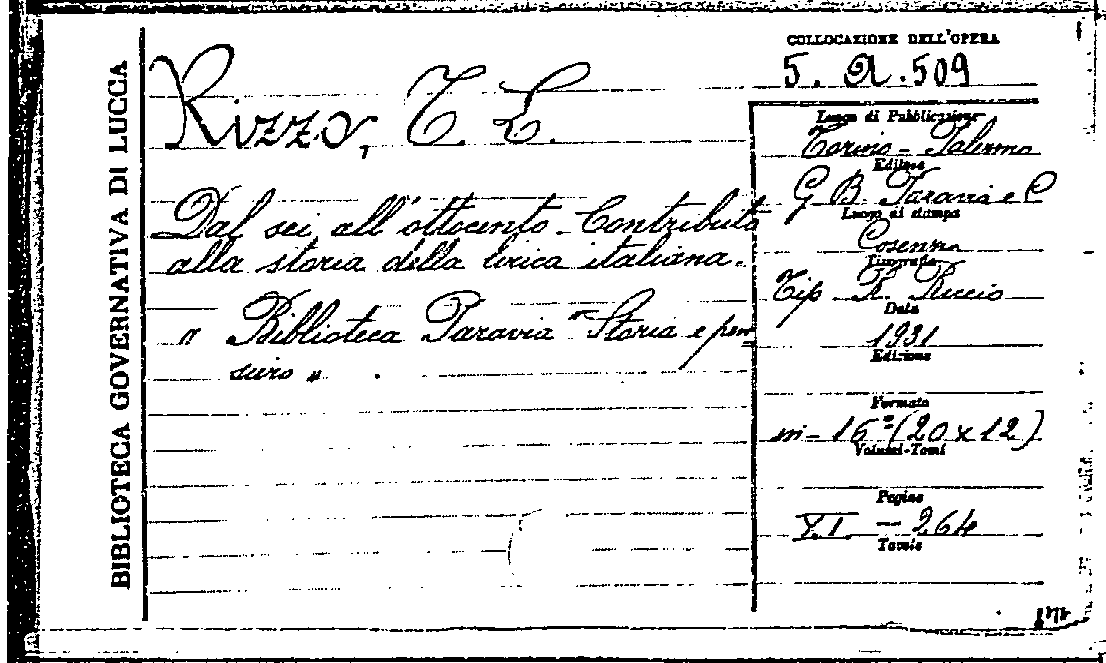 BIBLIOTECA GOVERNATIVA DI LUCCA
COLLOCAZIONE DELL'OPERA
5. a. 509
Rizzo, T. L.
Dal sei all'ottocento - Contributo
alla storia della lirica italiana.
" Biblioteca Paravia " Storia e pen=
siero "
Luogo di Pubblicazione
Torino - Palermo
Editore
G. B. Paravia e C
Luogo di stampa
Cosenza
Tipografia
Tip R. Riccio
Data
1931
Edizione
Formato
in- 16° (20 x 12)
Volumi-Tomi
Pagine
XI. - 264
Tavole